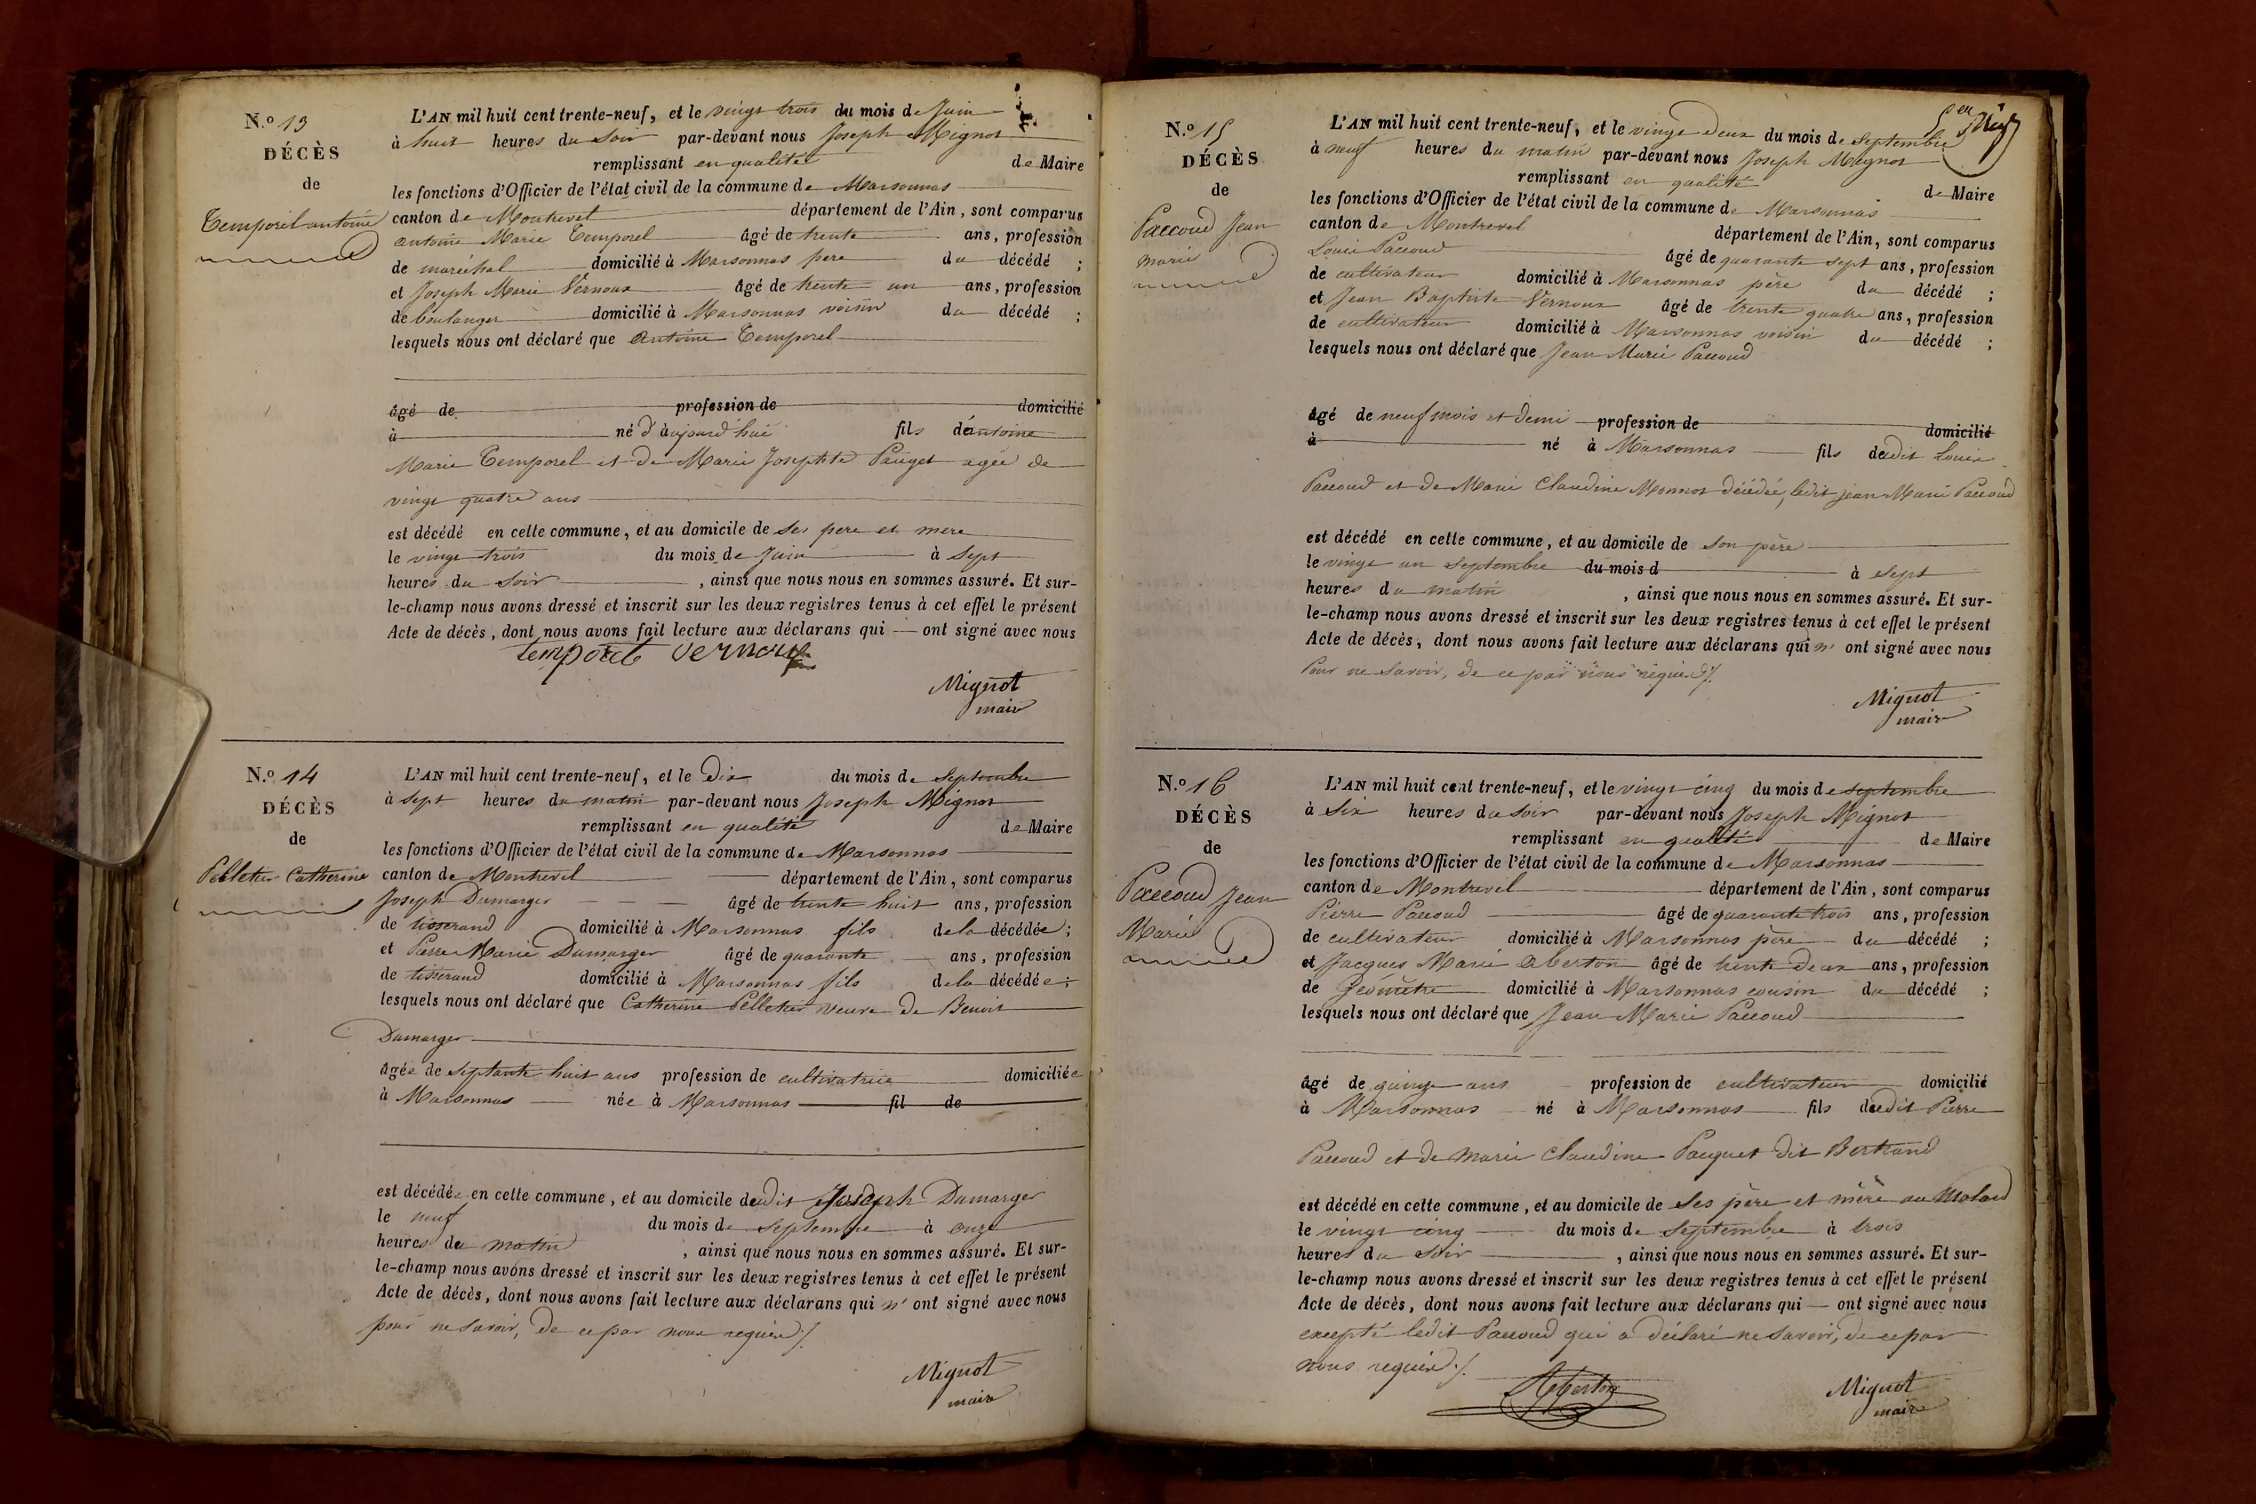 N.º 13
DÉCÈS
de
Temporel antoine
L'AN mil huit cent trente-neuf, et le vingt trois du mois de Juin
à huit heures du soir par-devant nous Joseph Mignot
remplissant en qualité de Maire
les fonctions d'Officier de l'état civil de la commune de Marsonnas
canton de Montrevel département de l'Ain, sont comparus
antoine Marie Temporel âgé de trente ans, profession
de maréchal domicilié à Marsonnas pere du décédé ;
et Joseph Marie Vernoux âgé de trente un ans, profession
de boulanger domicilié à Marsonnas voisin du décédé ;
lesquels nous ont déclaré que antoine Temporel
âgé de profession de domicilié
à né d'aujourd'hui fils de antoine
Marie Temporel et de Marie Josephte Pauget agée de
vingt quatre ans
est décédé en cette commune, et au domicile de ses pere et mere
le vingt trois du mois de Juin à sept
heures du soir, ainsi que nous nous en sommes assuré. Et sur-
le-champ nous avons dressé et inscrit sur les deux registres tenus à cet effet le présent
Acte de décès, dont nous avons fait lecture aux déclarans qui ont signé avec nous
temporel vernoux
Mignot
maire
N.º 14
DÉCÈS
de
Pelletier Catherine
L'AN mil huit cent trente-neuf, et le Dix du mois de Septembre
à sept heures du matin par-devant nous Joseph Mignot
remplissant en qualité de Maire
les fonctions d'Officier de l'état civil de la commune de Marsonnas
canton de Montrevel département de l'Ain, sont comparus
Joseph Damarger âgé de trente huit ans, profession
de tisserand domicilié à Marsonnas fils de la décédée ;
et Pierre Marie Damarger âgé de quarante ans, profession
de tisserand domicilié à Marsonnas fils de la décédée ;
lesquels nous ont déclaré que Catherine Pelletier veuve de Benoit
Damarger
âgée de septante huit ans profession de cultivatrice domiciliée
à Marsonnas née à Marsonnas fil de
est décédée en cette commune, et au domicile dudit Joseph Damarger
le neuf du mois de septembre à onze
heures du matin, ainsi que nous nous en sommes assuré. Et sur-
le-champ nous avons dressé et inscrit sur les deux registres tenus à cet effet le présent
Acte de décès, dont nous avons fait lecture aux déclarans qui n' ont signé avec nous
pour ne savoir, de ce par nous requis ./.
Mignot
maire
N.º 15
DÉCÈS
de
Paccoud Jean
marie
L'AN mil huit cent trente-neuf, et le vingt deux du mois de Septembre
à neuf heures du matin par-devant nous Joseph Mignot
remplissant en qualité de Maire
les fonctions d'Officier de l'état civil de la commune de Marsonnas
canton de Montrevel département de l'Ain, sont comparus
Louis Paccoud âgé de quarante sept ans, profession
de cultivateur domicilié à Marsonnas père du décédé ;
et Jean Baptiste Vernoux âgé de trente quatre ans, profession
de cultivateur domicilié à Marsonnas voisin du décédé ;
lesquels nous ont déclaré que Jean Marie Paccoud
âgé de neuf mois et demi profession de domicilié
à né à Marsonnas fils dudit Louis
Paccoud et de Marie Claudine Monnot décédée, ledit jean Marie Paccoud
est décédé en cette commune, et au domicile de son père
le vingt un septembre du mois d à sept
heures du matin, ainsi que nous nous en sommes assuré. Et sur-
le-champ nous avons dressé et inscrit sur les deux registres tenus à cet effet le présent
Acte de décès, dont nous avons fait lecture aux déclarans qui n' ont signé avec nous
Pour ne savoir, de ce par nous requis ./.
Mignot
maire
N.º 16
DÉCÈS
de
Paccoud Jean
Marie
L'AN mil huit cent trente-neuf, et le vingt cinq du mois de septembre
à six heures du soir par-devant nous Joseph Mignot
remplissant en qualité de Maire
les fonctions d'Officier de l'état civil de la commune de Marsonnas
canton de Montrevel département de l'Ain, sont comparus
Pierre Paccoud âgé de quarante trois ans, profession
de cultivateur domicilié à Marsonnas père du décédé ;
et Jacques Marie Aberton âgé de trente deux ans, profession
de Géomètre domicilié à Marsonnas cousin du décédé ;
lesquels nous ont déclaré que Jean Marie Paccoud
âgé de quinze ans profession de cultivateur domicilié
à Marsonnas né à Marsonnas fils dudit Pierre
Paccoud et de marie Claudine Pauget dit Bertrand
est décédé en cette commune, et au domicile de Ses père et mère au Molard
le vingt cinq du mois de Septembre à trois
heures du soir, ainsi que nous nous en sommes assuré. Et sur-
le-champ nous avons dressé et inscrit sur les deux registres tenus à cet effet le présent
Acte de décès, dont nous avons fait lecture aux déclarans qui ont signé avec nous
excepté ledit Paccoud qui a déclaré ne savoir, de ce par
nous requis ./.
Aberton
Mignot
maire